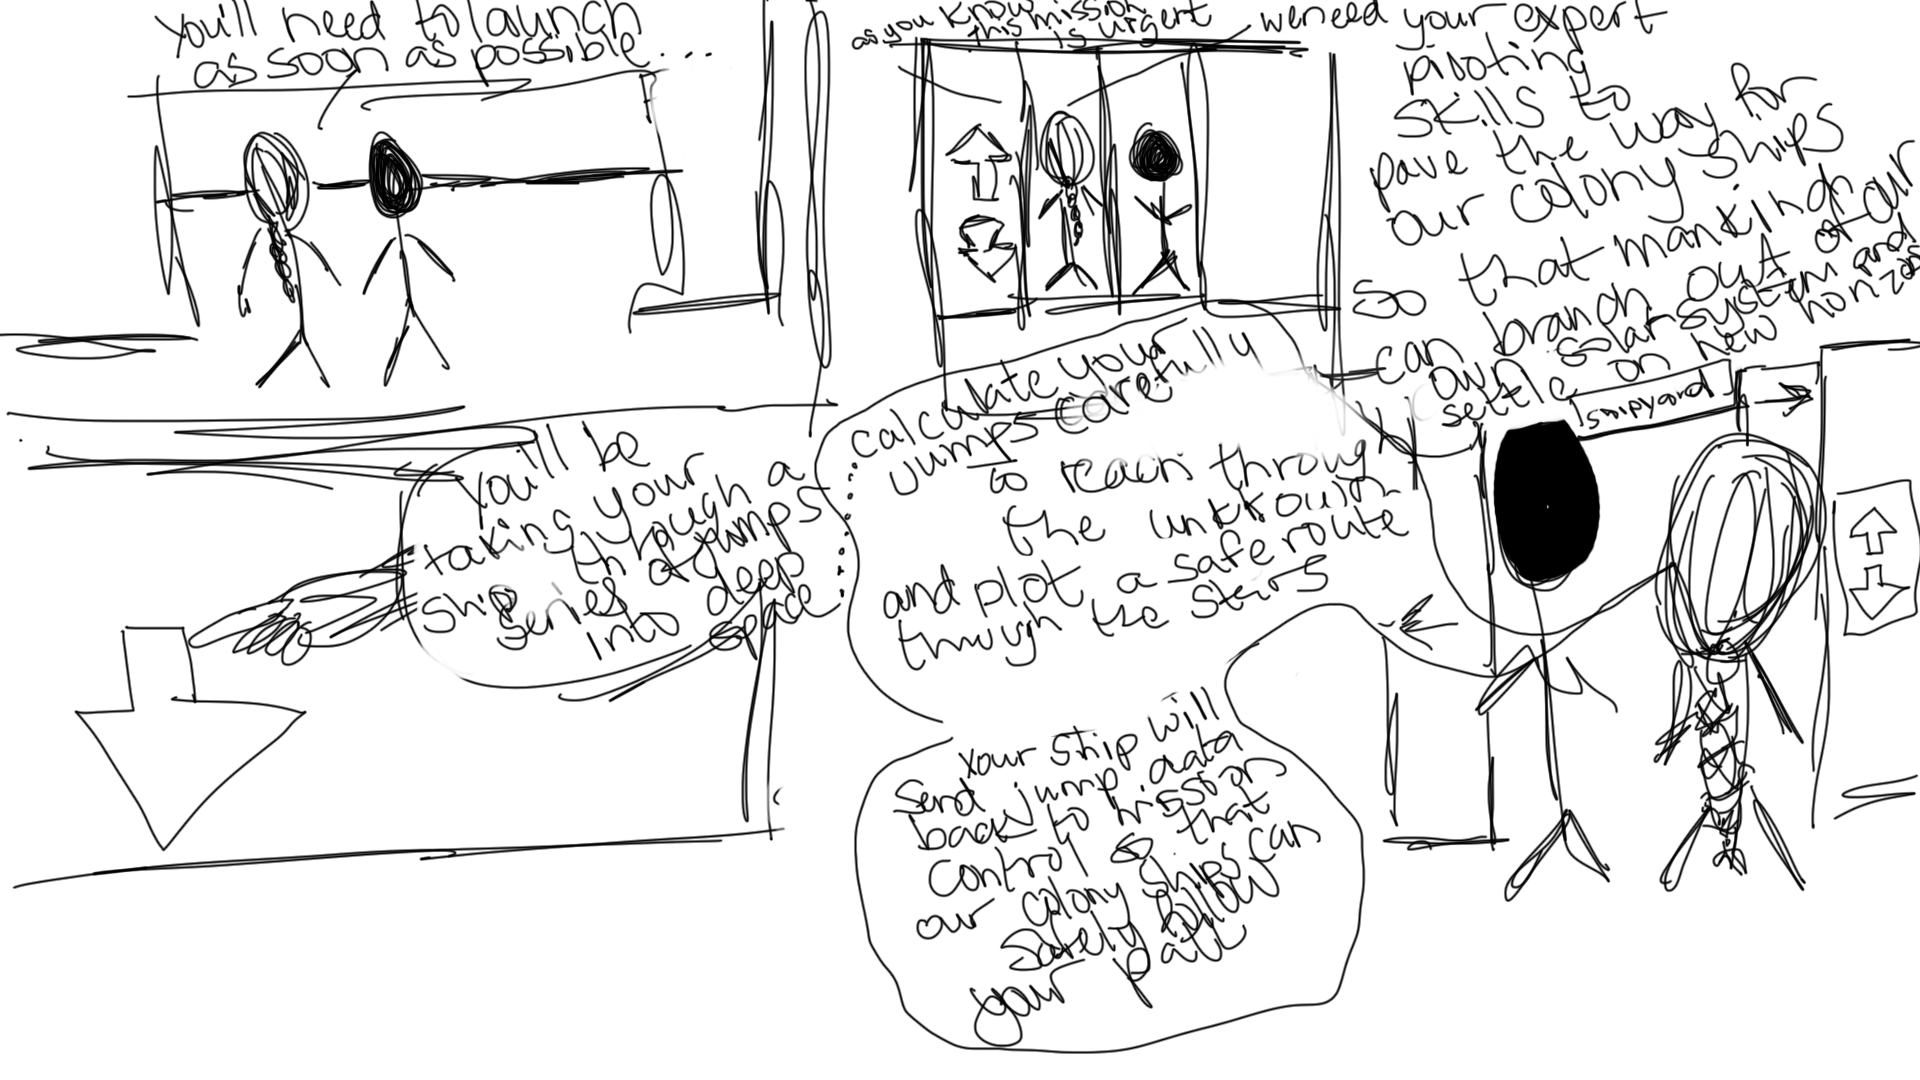 You'll need to launch
as soon as possible...
as you know
this mission
is urgent
we need your expert
piloting
skills to
pave the way for
our colony ships
so that mankind
can branch out of our
own solar system and
settle on new horizons
shipyard
You'll be
taking your
ship through a
series of jumps
into deep
space
calculate your
jumps carefully
to reach through
the unknown
and plot a safe route
through the stars
Your ship will
send jump data
back to mission
control so that
our colony ships can
safely follow
your path